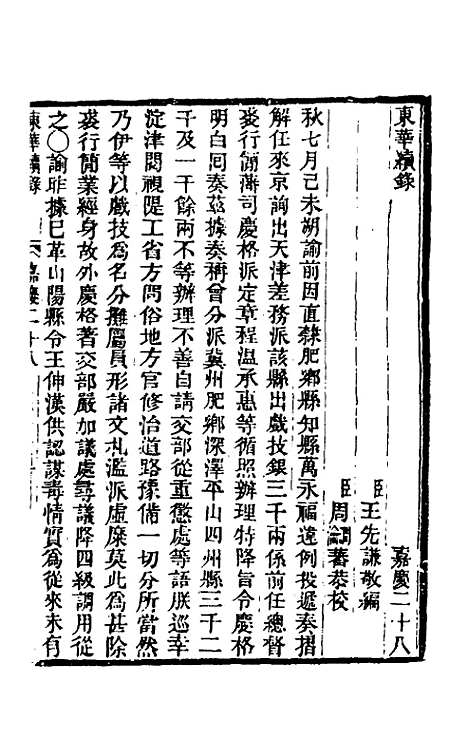 東華續錄
嘉慶二十八
臣王先謙敬編
臣周蕃恭校
秋七月己未朔諭前因直隸肥鄉縣知縣萬永福違例投遞奏摺
解任來京詢出天津差務派該縣出戲技銀三千兩係前任總督
裘行簡藩司慶格派定章程溫承惠等循照辦理特降旨令慶格
明白回奏茲據奏稱曾分派冀州肥鄉深澤平山四州縣三千二
千及一千餘兩不等辦理不善自請交部從重懲處等語朕巡幸
淀津閱視隄工省方問俗地方官修治道路豫備一切分所當然
乃伊等以戲技為名分攤屬員形諸文札濫派虛糜莫此為甚除
裘行簡業經身故外慶格著交部嚴加議處尋議降四級調用從
之○諭昨據已革山陽縣令王伸漢供認謀毒情質為從來未有
東華續錄 嘉慶二十八